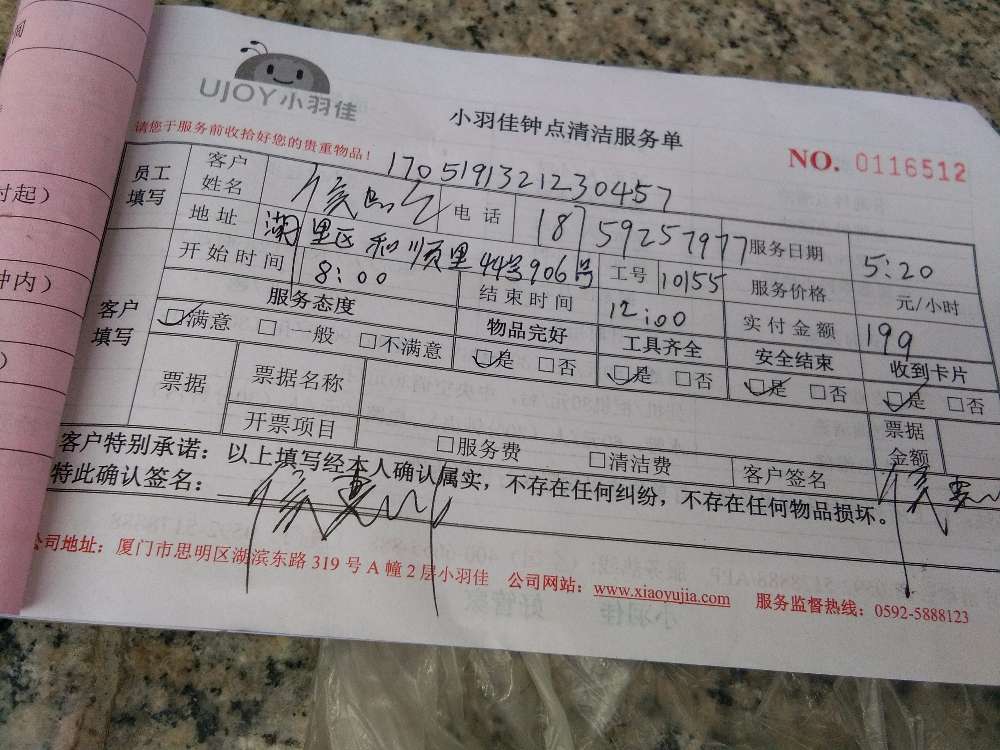 UJOY小羽佳
小羽佳钟点清洁服务单
NO. 0116512
请您于服务前收拾好您的贵重物品！
1705191321230457
员工填写 客户姓名 侯 电话 18759257977 服务日期 5:20
地址 湖里区和顺里44号906号 工号 10155 服务价格 元/小时
客户填写 开始时间 8:00 结束时间 12:00 实付金额 199
服务态度 物品完好 工具齐全 安全结束 收到卡片
满意 一般 不满意 是 否 是 否 是 否 是 否
票据 票据名称 票据金额
开票项目 服务费 清洁费 客户签名 侯
客户特别承诺：以上填写经本人确认属实，不存在任何纠纷，不存在任何物品损坏。
特此确认签名： 侯
公司地址：厦门市思明区湖滨东路319号A幢2层小羽佳 公司网站：www.xiaoyujia.com 服务监督热线：0592-5888123
时起）
钟内）